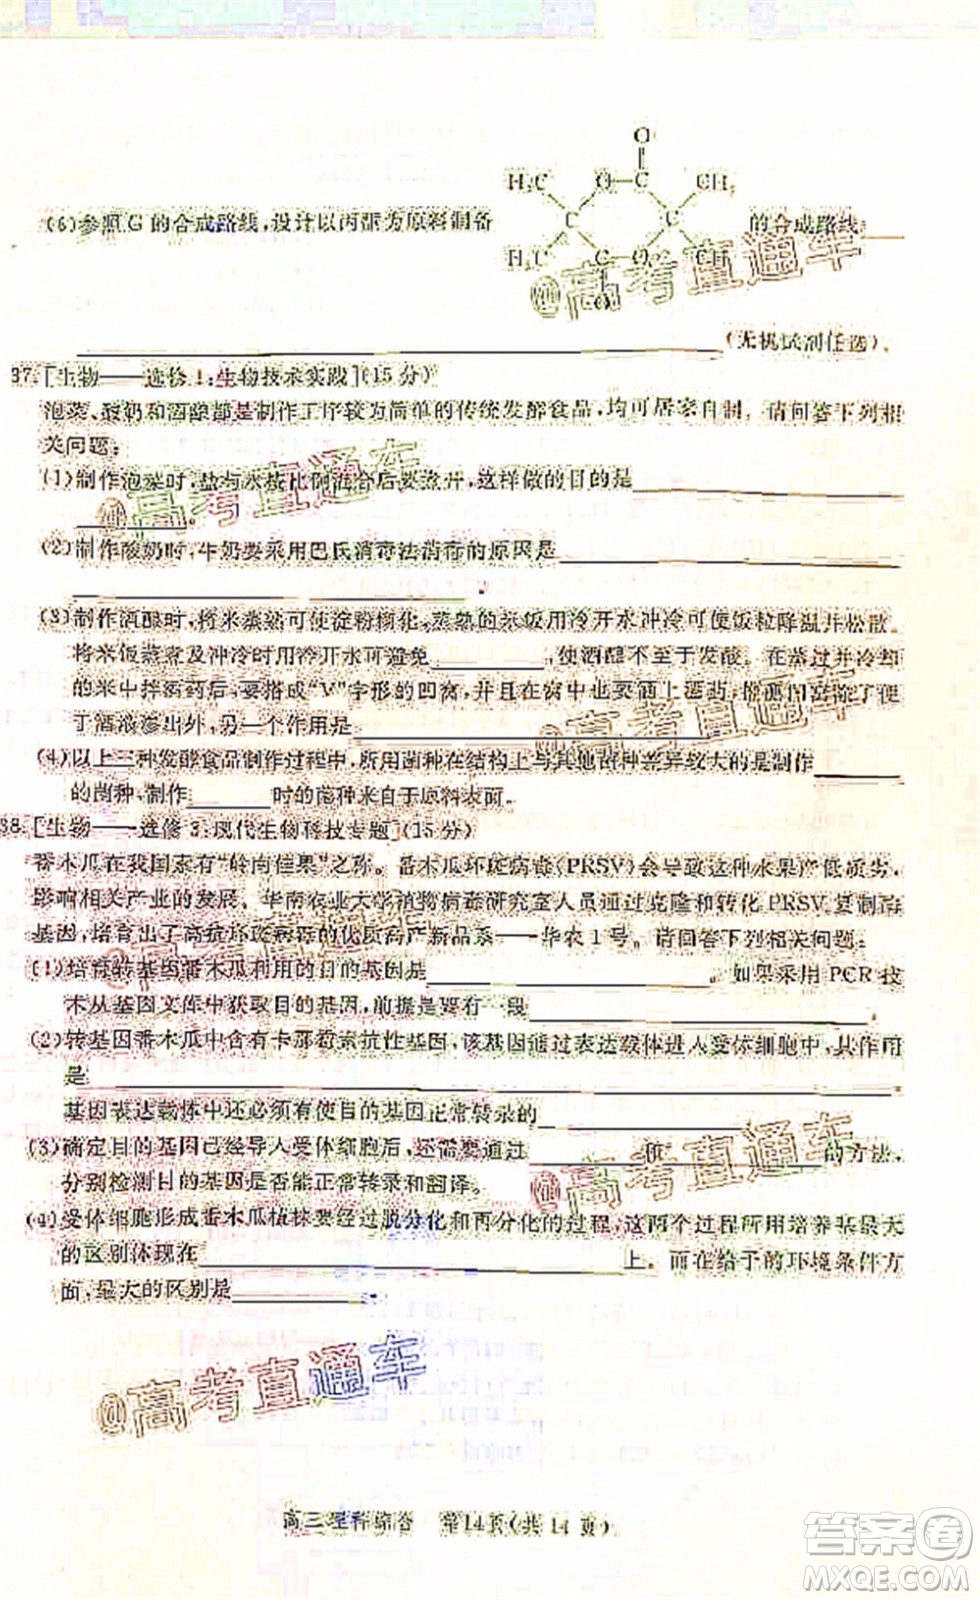 O
H₃C O—C CH₃
(6)参照G的合成路线,设计以丙酮为原料制备 的合成路线
H₃C C—O CH₃
O
(无机试剂任选)。
37.[生物——选修1:生物技术实践](15分)
泡菜、酸奶和酒酿都是制作工序较为简单的传统发酵食品,均可居家自制。请回答下列相
关问题:
(1)制作泡菜时,盐与水按比例混合后要煮开,这样做的目的是
。
(2)制作酸奶时,牛奶要采用巴氏消毒法消毒的原因是
。
(3)制作酒酿时,将米蒸熟可使淀粉糊化,蒸熟的米饭用冷开水冲冷可使饭粒降温并松散。
将米饭蒸煮与冲冷时用冷开水可避免 ,使酒酿不至于发酸。在蒸过并冷却
的米中拌酒药后,要搭成“V”字形的凹窝,并且在窝中也要洒上酒药,
于酒液渗出外,另一个作用是
(4)以上三种发酵食品制作过程中,所用菌种在结构上与其他菌种差异较大的是制作
的菌种,制作 时的菌种来自于原料表面。
38.[生物——选修3:现代生物科技专题](15分)
番木瓜在我国素有“岭南佳果”之称。番木瓜环斑病毒(PRSV)会导致这种水果产量低质劣,
影响相关产业的发展。华南农业大学植物病毒研究室人员通过克隆和转化PRSV复制酶
基因,培育出了高抗环斑病毒的优质高产新品系——华农1号。请回答下列相关问题:
(1)培育转基因番木瓜利用的目的基因是 。如果采用PCR技
术从基因文库中获取目的基因,前提是要有一段 。
(2)转基因番木瓜中含有卡那霉素抗性基因,该基因随表达载体进入受体细胞中,其作用
是 。
基因表达载体中还必须有使目的基因正常转录的 。
(3)确定目的基因已经导入受体细胞后,还需要通过 和 的方法,
分别检测目的基因是否能正常转录和翻译。
(4)受体细胞形成番木瓜植株要经过脱分化和再分化的过程,这两个过程所用培养基最大
的区别体现在 上。而在给予的环境条件方
面,最大的区别是 。
@高考直通车
高三理科综合 第14页(共14页)
@高考直通车
@高考直通车
@高考直通车
@高考直通车
答案圈
MXQE.COM